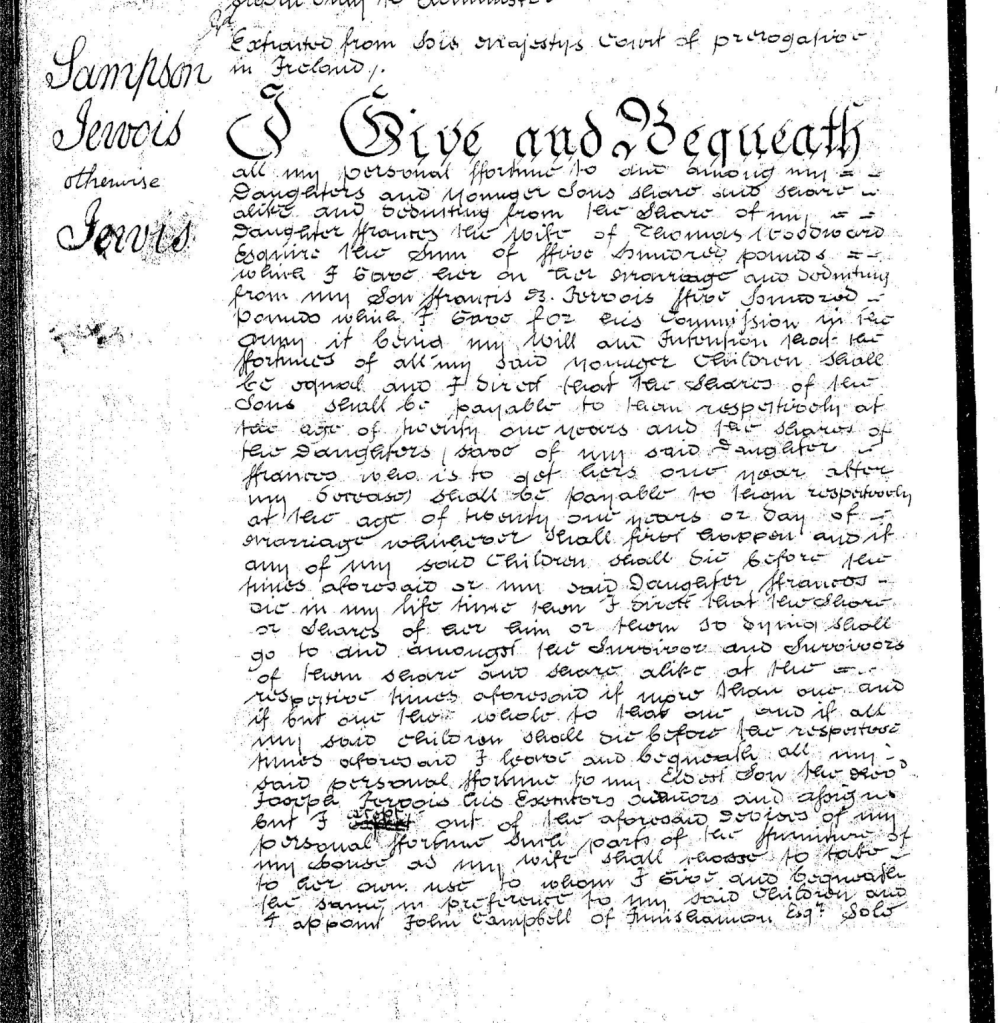 Extracted from his Majestys Court of prerogative
in Ireland,.
Sampson
Jervois
otherwise
Jervis
I Give and Bequeath
all my personal ffortune to and among my = =
Daughters and younger Sons share and share -
alike and deducting from the Share of my = =
Daughter ffrances the wife of Thomas Woodward
Esquire the Sum of ffive hundred pounds = -
which I Gave her on her Marriage and deducting
from my Son ffrancis Jervois ffive hundred -
pounds which I Gave for his Commission in the
army it being my will and Intention that the
ffortunes of all my said younger Children shall
be equal and I direct that the Shares of the
Sons shall be payable to them respectively at
the age of twenty one years and the shares of
the Daughters (save of my said Daughter -
ffrances who is to get hers one year after
my decease) shall be payable to them respectively
at the age of twenty one years or day of -
Marriage whichever shall first happen and if
any of my said Children shall die before the
times aforesaid or my said Daughter ffrances -
die in my life time then I direct that the Share
or Shares of her him or them so dying shall
go to and amongst the Survivor and Survivors
of them share and share alike at the = -
respective times aforesaid if more than one and
if but one the whole to that one and if all
my said children shall die before the respective
times aforesaid I leave and bequeath all my -
said personal ffortune to my Eldest Son the Revd
Joseph Jervois his Executors admors and assigns
but I except out of the aforesaid devises of my
personal ffortune such parts of the ffurniture of
my house as my wife shall choose to take -
to her own use to whom I Give and bequeath
the same in preference to my said Children and
I appoint John Campbell of Innishannon Esqr. Sole